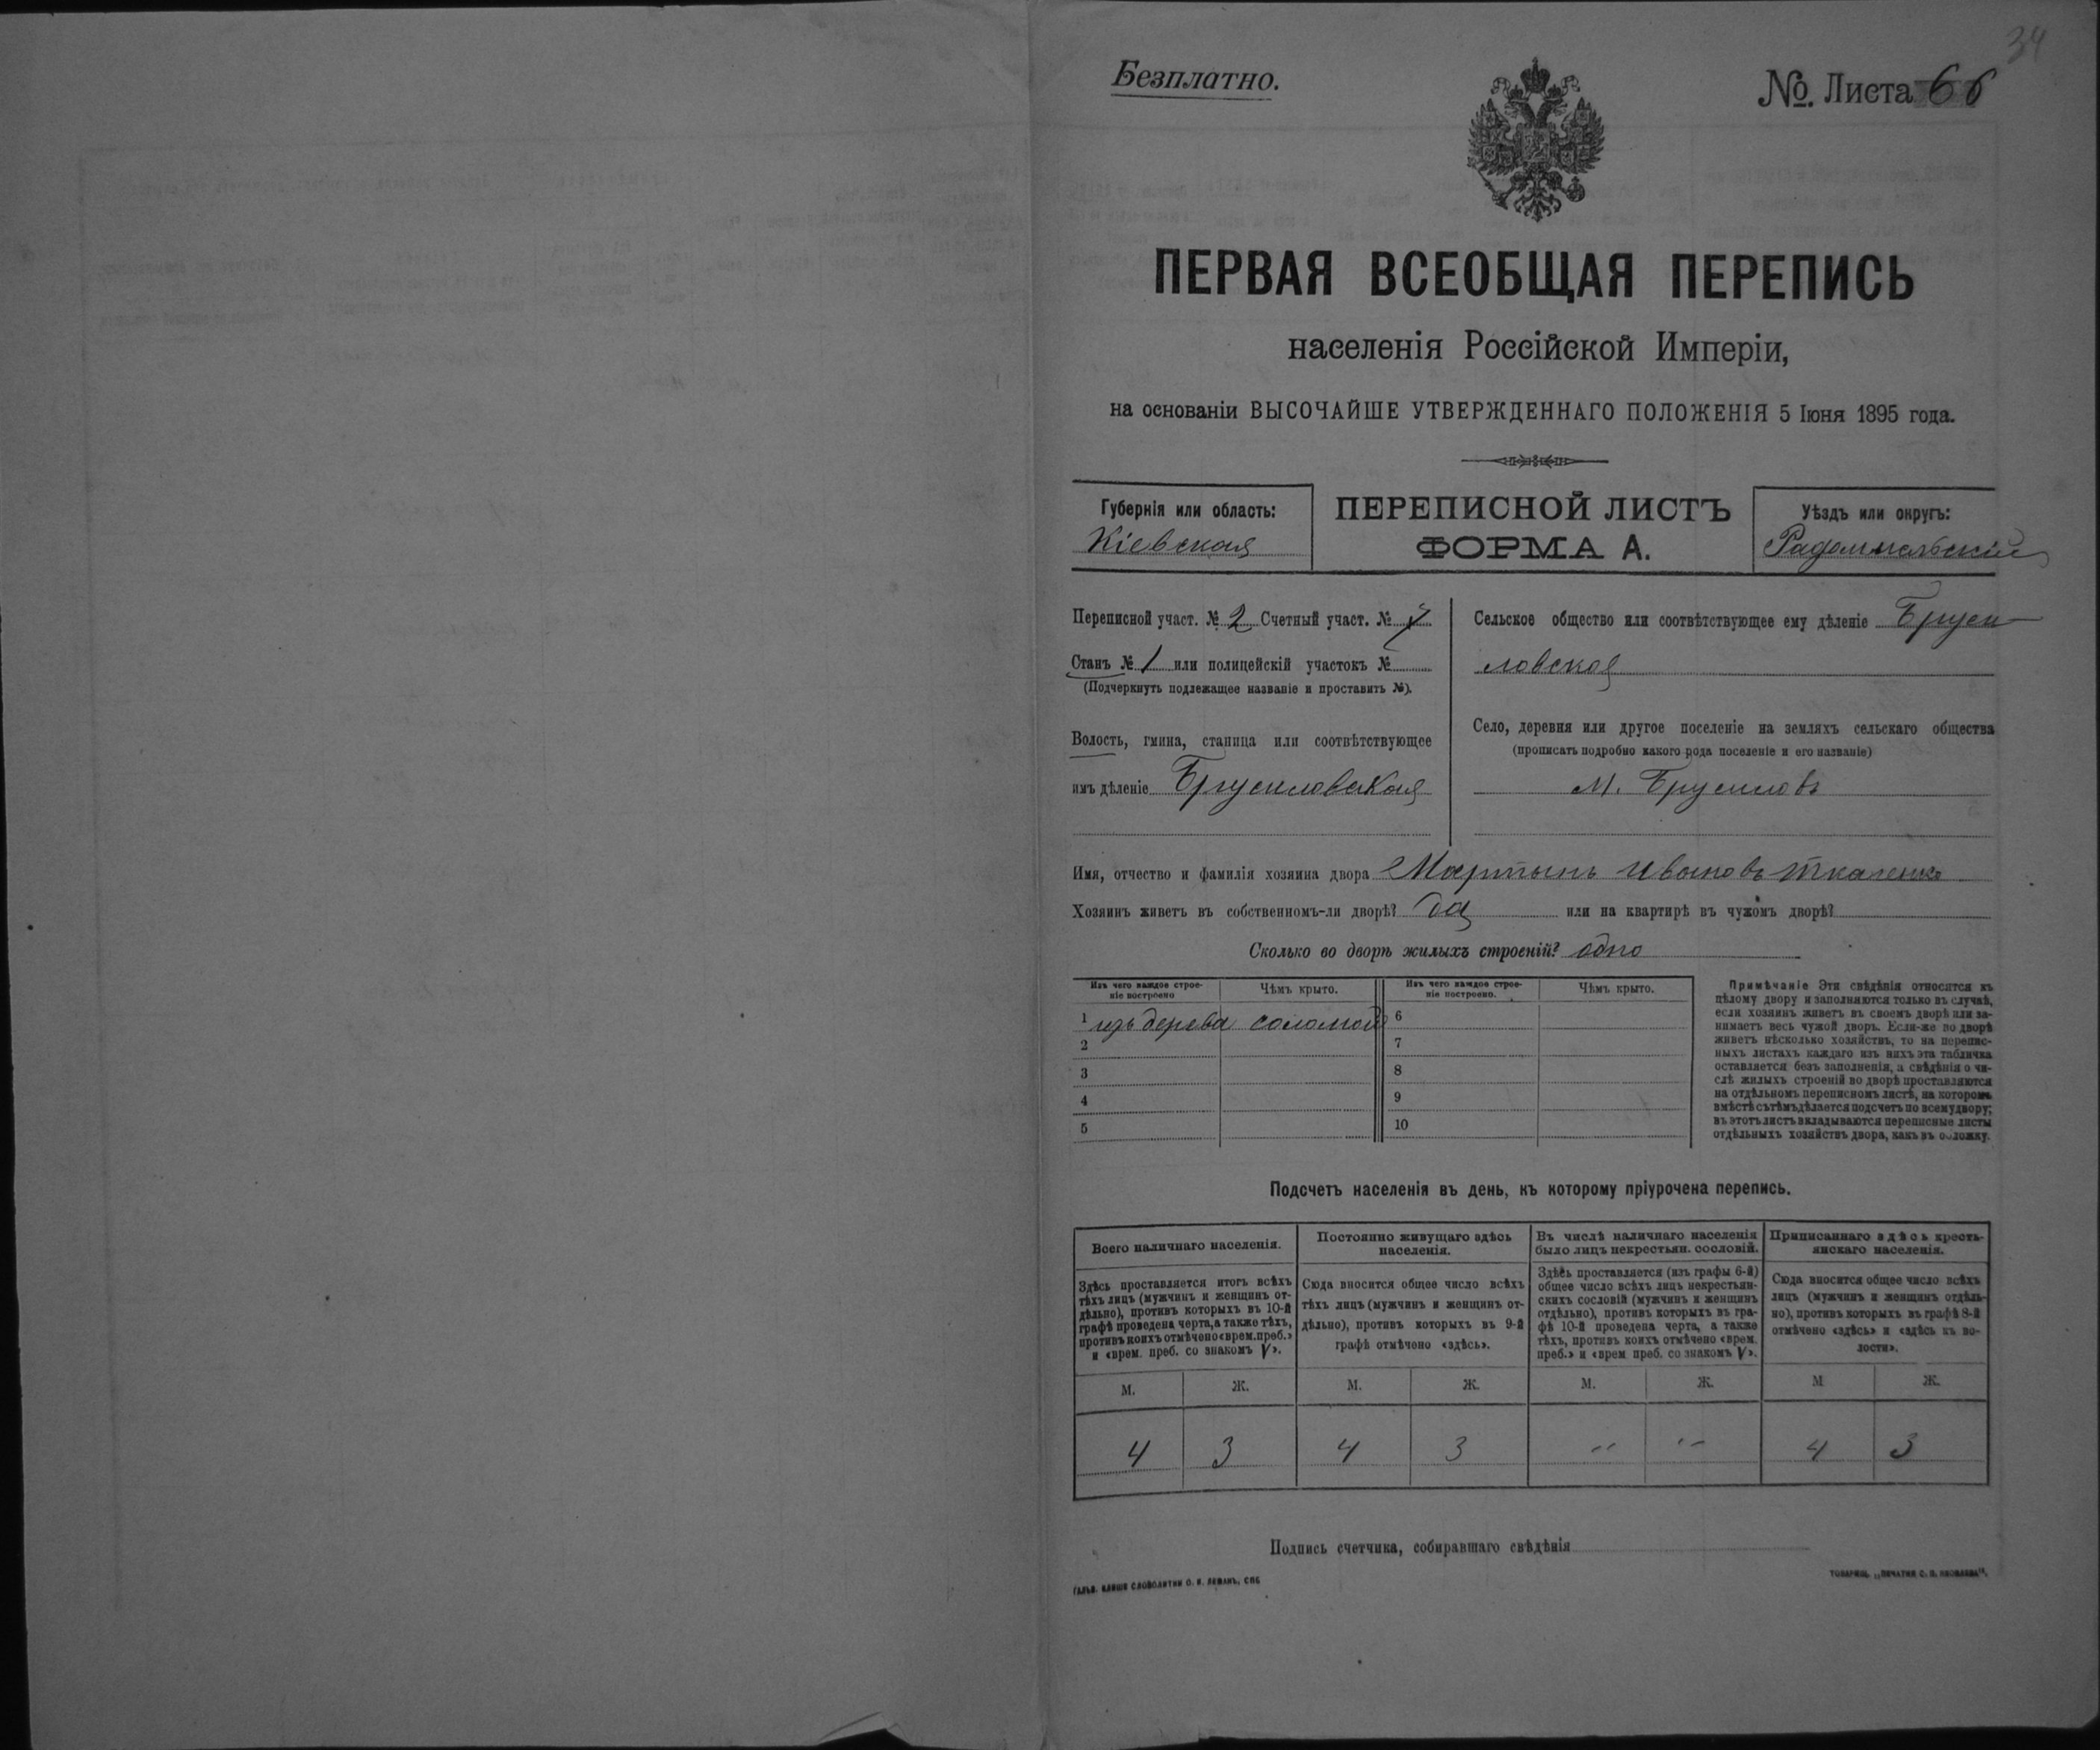 34
Безплатно.
№ Листа 66
ПЕРВАЯ ВСЕОБЩАЯ ПЕРЕПИСЬ
населенія Россійской Имперіи,
на основаніи ВЫСОЧАЙШЕ УТВЕРЖДЕННАГО ПОЛОЖЕНІЯ 5 Іюня 1895 года.
Губернія или область:
Кіевская
ПЕРЕПИСНОЙ ЛИСТЪ
ФОРМА А.
Уѣздъ или округъ:
Радомысльскій
Переписной участ. № 2 Счетный участ. №
Станъ № 1 или полицейскій участокъ №
(Подчеркнуть подлежащее названіе и проставить №).
Волость, гмина, станица или соотвѣтствующее
имъ дѣленіе Брусиловская
Сельское общество или соотвѣтствующее ему дѣленіе Бруси-
ловская
Село, деревня или другое поселеніе на земляхъ сельскаго общества
(прописать подробно какого рода поселеніе и его названіе)
м. Брусиловъ
Имя, отчество и фамилія хозяина двора Мартынъ Ивановъ Ткаченко
Хозяинъ живетъ въ собственномъ-ли дворѣ? да или на квартирѣ въ чужомъ дворѣ?
Сколько во дворѣ жилыхъ строеній? одно
Изъ чего каждое строе-
ніе построено
Чѣмъ крыто.
Изъ чего каждое строе-
ніе построено.
Чѣмъ крыто.
1 изъ дерева соломой 6
2 7
3 8
4 9
5 10
Примѣчаніе Эти свѣдѣнія относятся къ
цѣлому двору и заполняются только въ случаѣ,
если хозяинъ живетъ въ своемъ дворѣ или за-
нимаетъ весь чужой дворъ. Если-же во дворѣ
живетъ нѣсколько хозяйствъ, то на перепис-
ныхъ листахъ каждаго изъ нихъ эта табличка
оставляется безъ заполненія, а свѣдѣнія о чи-
слѣ жилыхъ строеній во дворѣ проставляются
на отдѣльномъ переписномъ листѣ, на которомъ
вмѣстѣ съ тѣмъ дѣлается подсчетъ по всему двору;
въ этотъ листъ вкладываются переписные листы
отдѣльныхъ хозяйствъ двора, какъ въ обложку.
Подсчетъ населенія въ день, къ которому пріурочена перепись.
Всего наличнаго населенія.
Здѣсь проставляется итогъ всѣхъ
тѣхъ лицъ (мужчинъ и женщинъ от-
дѣльно), противъ которыхъ въ 10-й
графѣ проведена черта, а также тѣхъ,
противъ коихъ отмѣчено «врем. преб.»
и «врем. преб. со знакомъ V».
Постоянно живущаго здѣсь
населенія.
Сюда вносится общее число всѣхъ
тѣхъ лицъ (мужчинъ и женщинъ от-
дѣльно), противъ которыхъ въ 9-й
графѣ отмѣчено «здѣсь».
Въ числѣ наличнаго населенія
было лицъ некрестьян. сословій.
Здѣсь проставляется (изъ графы 6-й)
общее число всѣхъ лицъ некрестьян-
скихъ сословій (мужчинъ и женщинъ
отдѣльно), противъ которыхъ въ гра-
фѣ 10-й проведена черта, а также
тѣхъ, противъ коихъ отмѣчено «врем.
преб.» и «врем преб. со знакомъ V».
Приписаннаго здѣсь кресть-
янскаго населенія.
Сюда вносится общее число всѣхъ
лицъ (мужчинъ и женщинъ отдѣль-
но), противъ которыхъ въ графѣ 8-й
отмѣчено «здѣсь» и «здѣсь къ во-
лости».
М. Ж. М. Ж. М. Ж. М Ж.
4 3 4 3 " " 4 3
Подпись счетчика, собиравшаго свѣдѣнія
ГАЛЬВ. КЛИШЕ СЛОВОЛИТНИ О. И. ЛЕМАНЪ, СПБ
ТОВАРИЩ. „ПЕЧАТНЯ С. П. ЯКОВЛЕВА“.